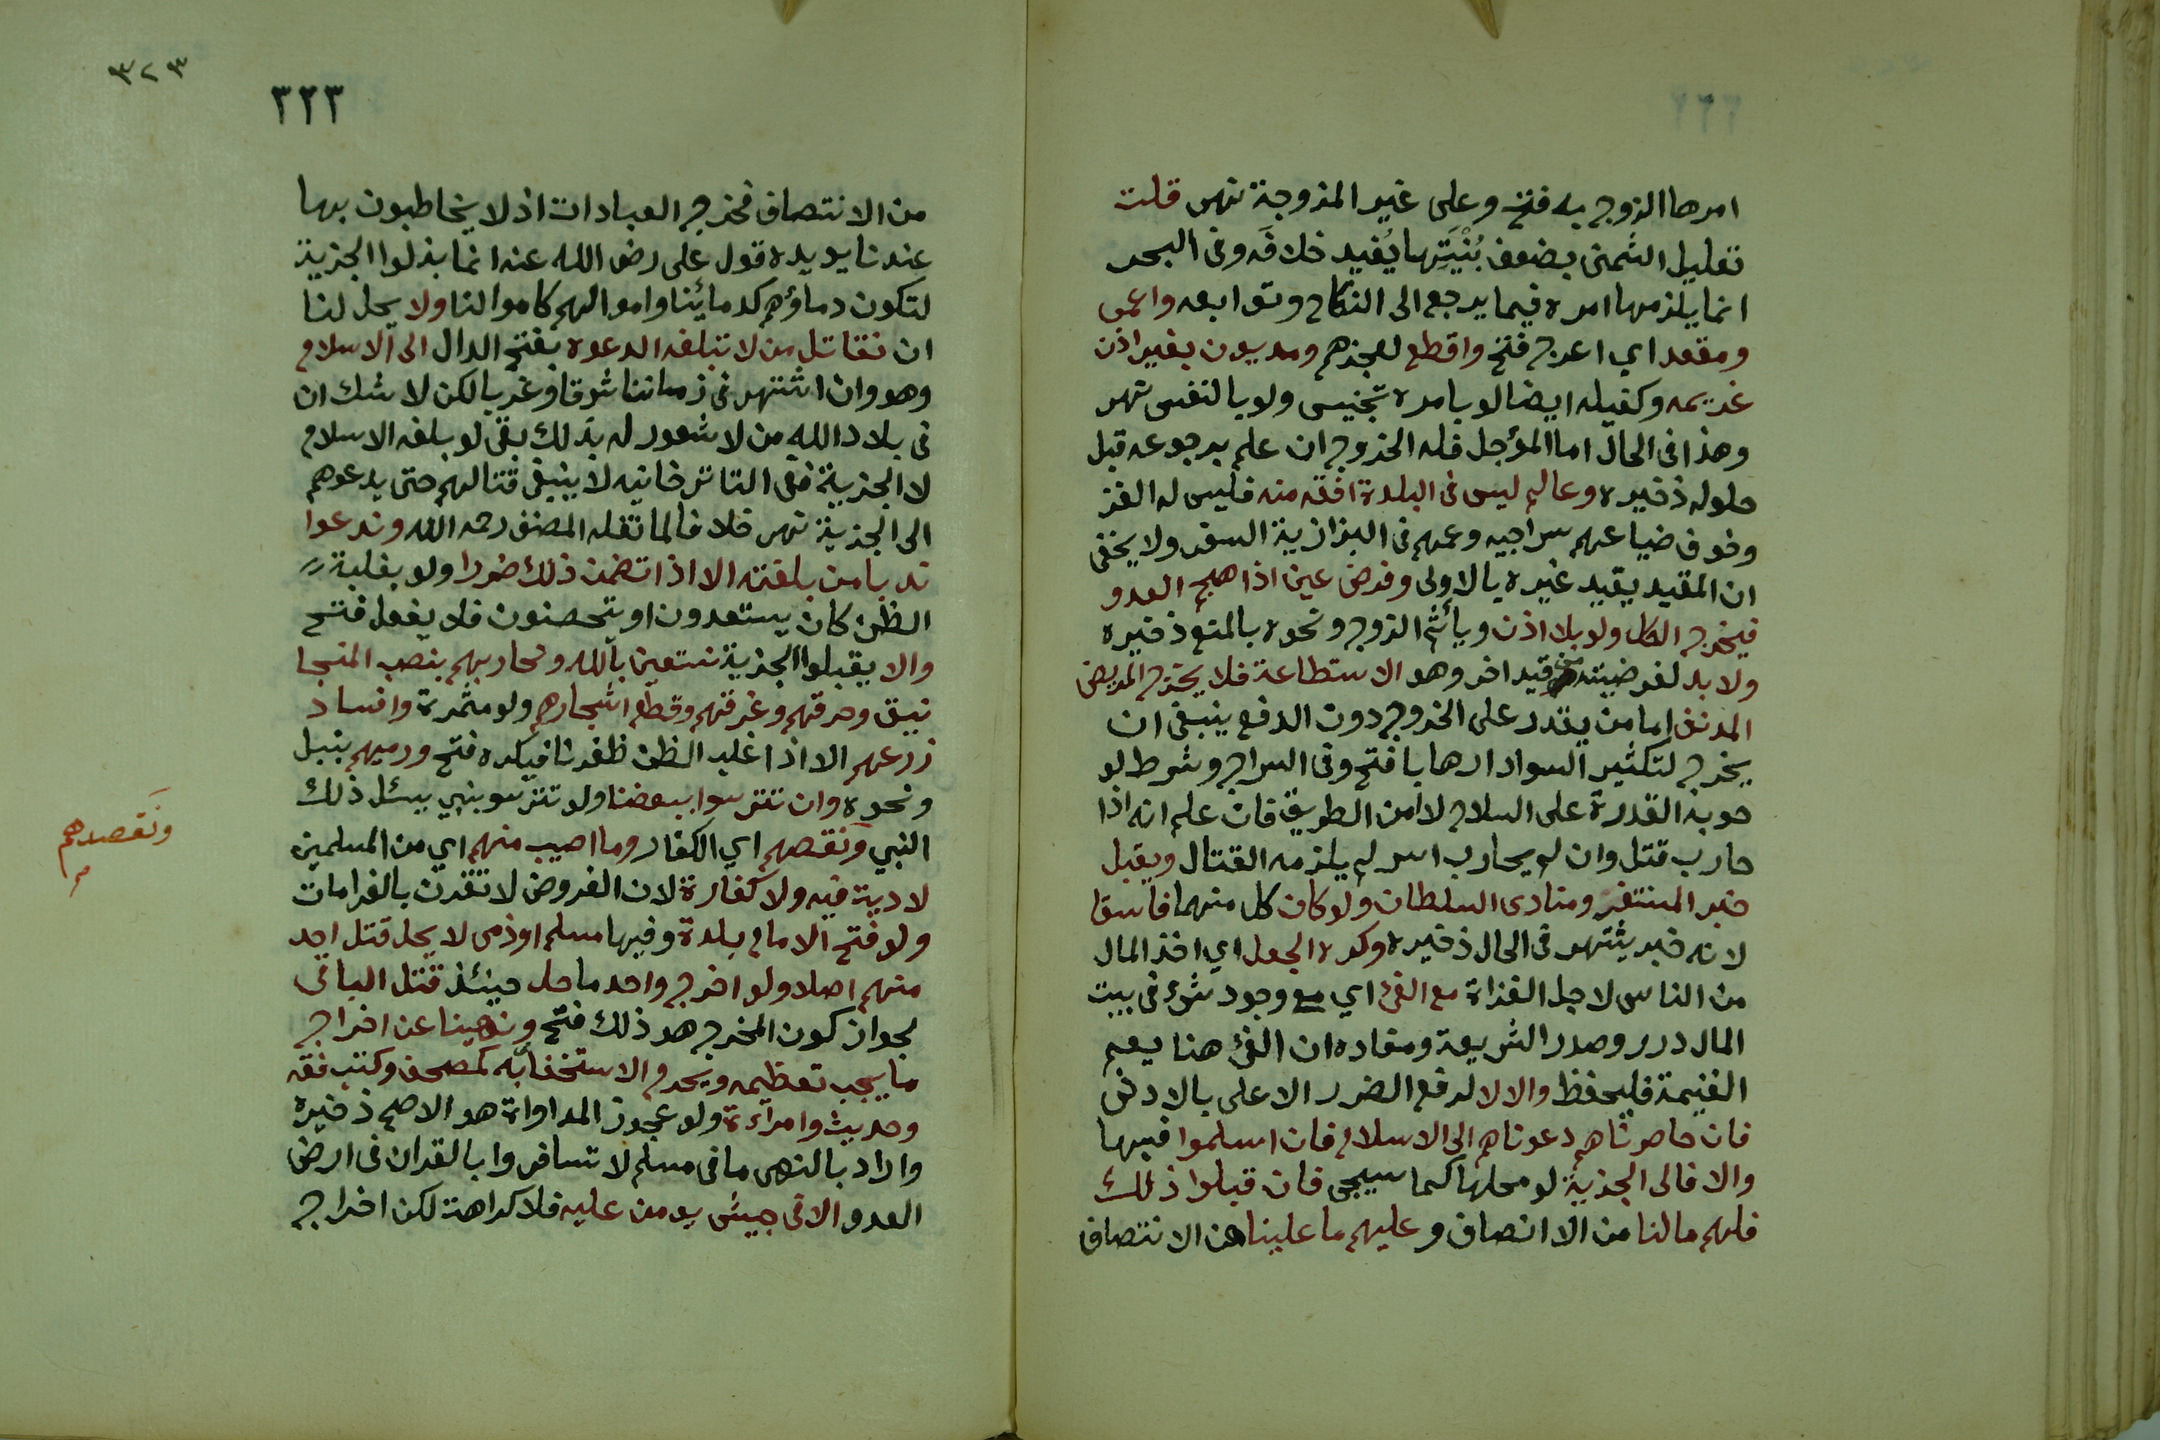 امرها الزوج به فتح وعلى غير المزوجة نهر قلت
تعليل الشمنى بضعف بُنْيَتِها يُفيد خلافَه وفى البحر
انما يلزمها امره فيما يرجع الى النكاح وتوابعه واعمى
ومقعد اي اعرج فتح واقطع لعجزهم ومديون بغير اذن
غريمه وكفيله ايضا لو بامره تجنيس ولو بالنفس نهر
وهذا فى الحال اما المؤجل فله الخروج ان علم برجوعه قبل
حلوله ذخيره وعالم ليس فى البلدة افقه منه فليس له الغز
وخوف ضياعهم سراجيه وعمم فى البزازية السفر ولا يخفى
ان المقيد يفيد غيره بالاولى وفرض عين اذا هجم العدو
فيخرج الكل ولو بلا اذن ويأثم الزوج ونحوه بالمنع ذخيره
ولا بد لفرضيته من قيد اخر وهو الاستطاعة فلا يخرج المريض
المدنف اما من يقدر على الخروج دون الدفع ينبغى ان
يخرج لتكثير السواد ارهابا فتح وفى السراج وشرط لو
جوبه القدرة على السلاح لا امن الطريق فان علم انه اذا
حارب قتل وان لم يحارب اسر لم يلزمه القتال ويقبل
خبر المستنفر ومنادى السلطان ولو كان كل منهما فاسقا
لانه خبر يشتهر فى الحال ذخيره وكره الجعل اي اخذ المال
من الناس لاجل الغزاة مع الفئ اي مع وجود شئ فى بيت
المال درر وصدر الشريعة ومفاده ان الفئ هنا يعم
الغنيمة فليحفظ والا لا لدفع الضرر الاعلى بالادنى
فان حاصرناهم دعوناهم الى الاسلام فان اسلموا فبها
والا فالى الجزية لو محلها كما سيجى فان قبلوا ذلك
فلهم ما لنا من الانصاف وعليهم ما علينا من الانتصاف
٣٢٣
٣٢٣
من الانتصاف فخرج العبادات اذ لا يخاطبون بها
عندنا يويده قول على رضى الله عنه انما بذلوا الجزية
لتكون دماؤهم كدمائنا واموالهم كاموالنا ولا يحل لنا
ان نقاتل من لا تبلغه الدعوة بفتح الدال الى الاسلام
وهو وان اشتهر فى زماننا شرقا وغربا لكن لا شك ان
فى بلاد الله من لا شعور له بذلك بقى لو بلغه الاسلام
لا الجزية ففى التاترخانيه لا ينبغى قتالهم حتى يدعوهم
الى الجزية نهر خلافا لما نقله المصنف رحمه الله وندعوا
ندبا من بلغته الا اذا تضمن ذلك ضررا ولو بغلبة
الظن كان يستعدون او يتحصنون فلا يفعل فتح
والا يقبلوا الجزية نستعين بالله ونحاربهم بنصب المنجا
نيق وحرقهم وغرقهم وقطع اشجارهم ولو مثمرة وافساد
زرعهم الا اذا غلب الظن ظفرنا فيكره فتح ورميهم بنبل
ونحوه وان تترسوا ببعضنا ولو تترسو بنبي يسئل ذلك
النبي وَنَقصهم اي الكفار وما اصيب منهم اي من المسلمين
لا دية فيه ولا كفارة لان الفروض لا تقرن بالغرامات
ولو فتح الامام بلدة وفيها مسلم او ذمى لا يحل قتل احد
منهم اصلا ولو اخرج واحد ما حل حينئذ قتل الباقى
لجواز كون المخرج هو ذلك فتح ونهينا عن اخراج
ما يجب تعظيمه ويحرم الاستخفا به كمصحف وكتب فقه
وحديث وامرأة ولو عجوز المداواة هو الاصح ذخيره
واراد بالنهى ما فى مسلم لا تسافروا بالقران فى ارض
العدو الا فى جيش يومن عليه فلا كراهة لكن اخراج
وَنَقصدهم
م